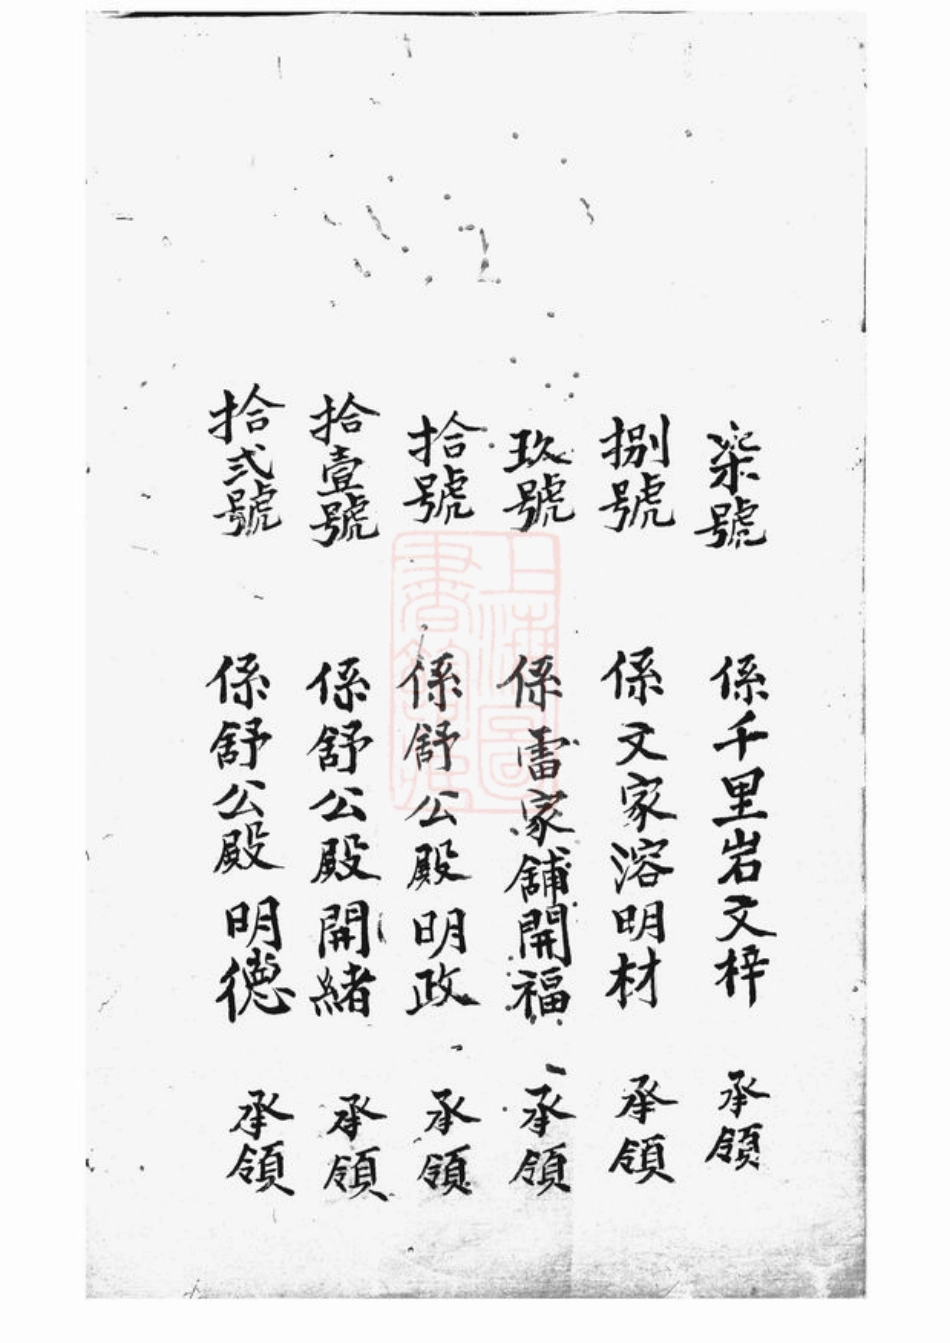 柒號 係千里岩文梓 承領
捌號 係文家溶明材 承領
玖號 係雷家舖開福 承領
拾號 係舒公殿明政 承領
拾壹號 係舒公殿開緒 承領
拾弍號 係舒公殿明德 承領
上海圖書館藏